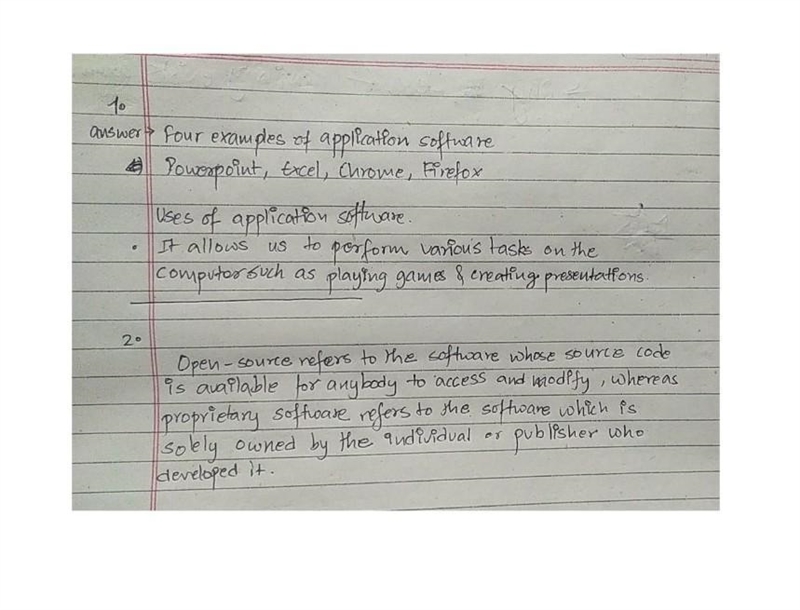 1.
answer→ Four examples of application software
Powerpoint, Excel, Chrome, Firefox
Uses of application software.
• It allows us to perform various tasks on the
computer such as playing games & creating presentations.
2.
Open-source refers to the software whose source code
is available for anybody to access and modify, whereas
proprietary software refers to the software which is
solely owned by the individual or publisher who
developed it.